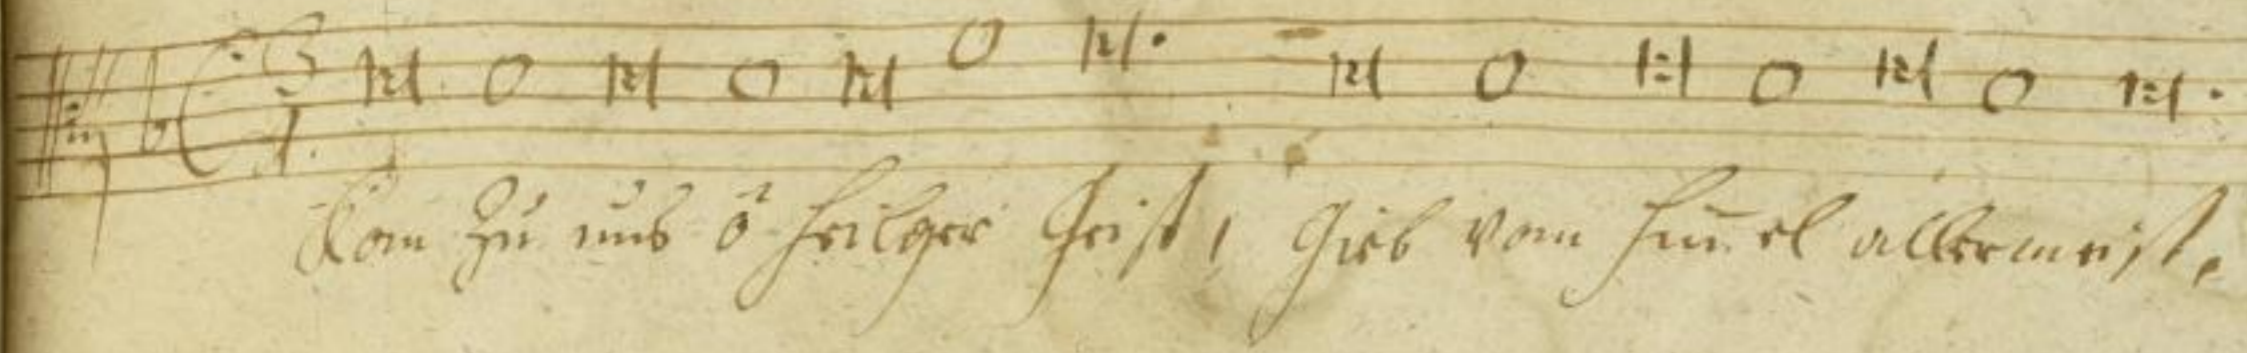 Kom zu uns o heilger Geist, Gieb vom Him̅el allermeist,